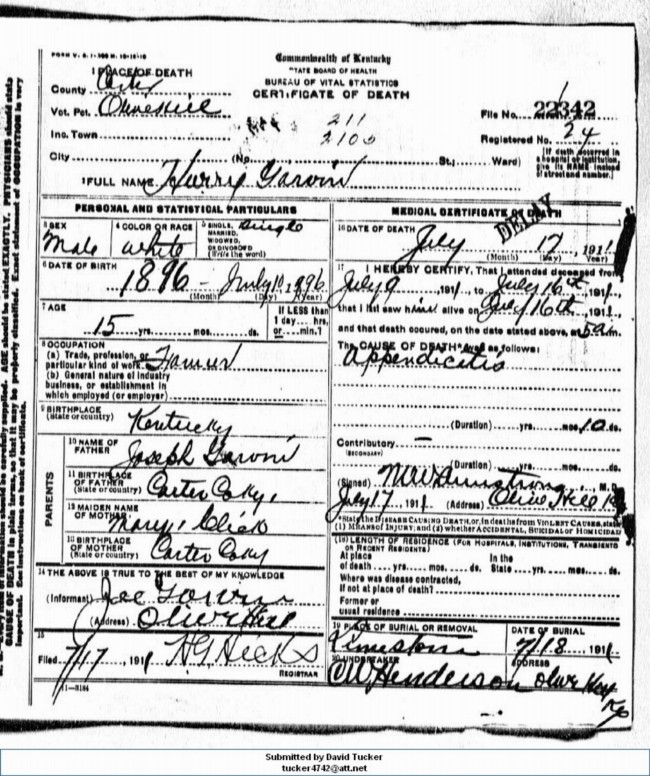 FORM V. S. 1-
Commonwealth of Kentucky
STATE BOARD OF HEALTH
BUREAU OF VITAL STATISTICS
CERTIFICATE OF DEATH
1 PLACE OF DEATH
County Carter
Vot. Pct. Olive Hill
Inc. Town
City (No. St.; Ward)
211
2100
File No. 22342
Registered No. 24
[If death occurred in a hospital or institution, give its NAME instead of street and number.]
2 FULL NAME Harry Garvin
PERSONAL AND STATISTICAL PARTICULARS
3 SEX Male
4 COLOR OR RACE white
5 SINGLE, MARRIED, WIDOWED, OR DIVORCED (Write the word) Single
6 DATE OF BIRTH 1896 - 1896
(Month) (Day) (Year)
7 AGE 15 yrs. mos. ds.
If LESS than 1 day ... hrs. or ... min.?
8 OCCUPATION
(a) Trade, profession, or particular kind of work Farmer
(b) General nature of industry business, or establishment in which employed (or employer)
9 BIRTHPLACE (State or country) Kentucky
PARENTS
10 NAME OF FATHER Joseph Garvin
11 BIRTHPLACE OF FATHER (State or country) Carter Co Ky.
12 MAIDEN NAME OF MOTHER Mary Click
13 BIRTHPLACE OF MOTHER (State or country) Carter Co Ky
14 THE ABOVE IS TRUE TO THE BEST OF MY KNOWLEDGE
(Informant) Joe Garvin
(Address) Olive Hill
15
Filed 7/17, 1911 H G Hicks
REGISTRAR
11-3184
MEDICAL CERTIFICATE OF DEATH
DELAY
16 DATE OF DEATH July 17, 1911
(Month) (Day) (Year)
17 I HEREBY CERTIFY, That I attended deceased from
July 9 1911 to July 16th 1911
that I last saw him alive on July 16th 1911
and that death occured, on the date stated above, at 5 am.
The CAUSE OF DEATH* was as follows:
Appendicitis
(Duration) yrs. mos. 10 ds.
Contributory —
(SECONDARY)
(Duration) yrs. mos. ds.
(Signed) M W Armstrong, M.D.
July 17 1911 (Address) Olive Hill Ky
*State the DISEASE CAUSING DEATH, or, in deaths from VIOLENT CAUSES, state (1) MEANS OF INJURY; and (2) whether ACCIDENTAL, SUICIDAL or HOMICIDAL
18 LENGTH OF RESIDENCE (FOR HOSPITALS, INSTITUTIONS, TRANSIENTS OR RECENT RESIDENTS)
At place of death yrs. mos. ds. In the State yrs. mos. ds.
Where was disease contracted, if not at place of death?
Former or usual residence
19 PLACE OF BURIAL OR REMOVAL Limestone
DATE OF BURIAL 7/18 1911
20 UNDERTAKER Henderson
ADDRESS Olive Hill Ky
supplied. AGE should be stated EXACTLY. PHYSICIANS should state
CAUSE OF DEATH in plain terms, so that it may be properly classified. Exact statement of OCCUPATION is very
important. See instructions on back of certificate.
Submitted by David Tucker
tucker4742@att.net